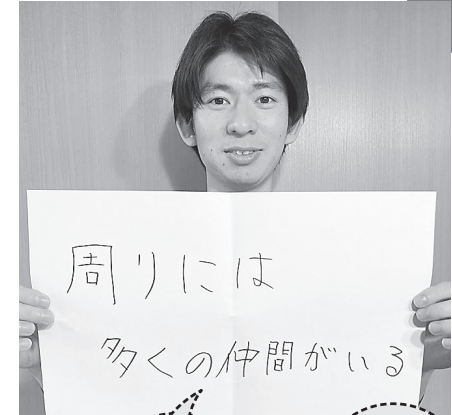 周りには
多くの仲間がいる